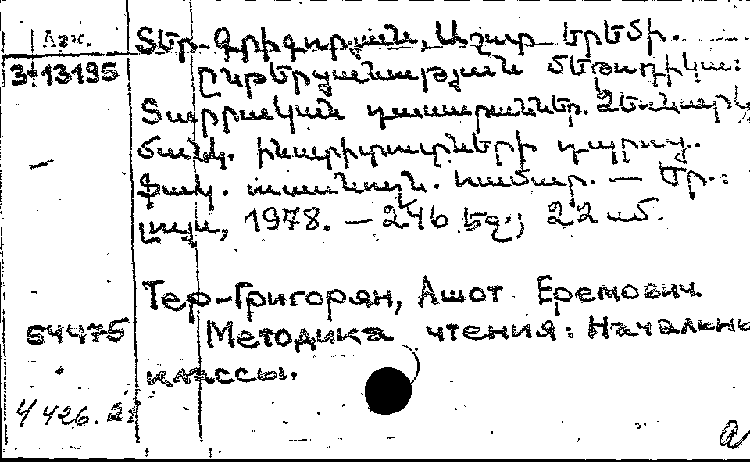 Տեր-Գրիգորյան, Աշոտ Երեմի.
3+13195 Ընթերցանության մեթոդիկա:
Տարրական դասարաններ. Ձեռնարկ
ման. ինստիտուտների
ֆակ. ուսանող. համար. — Եր.:
Լույս, 1978. — 246 եջ; 22 սմ.
Тер-Григорян, Ашот Еремович.
64475 Методика чтения: Начальны
классы.
426.2